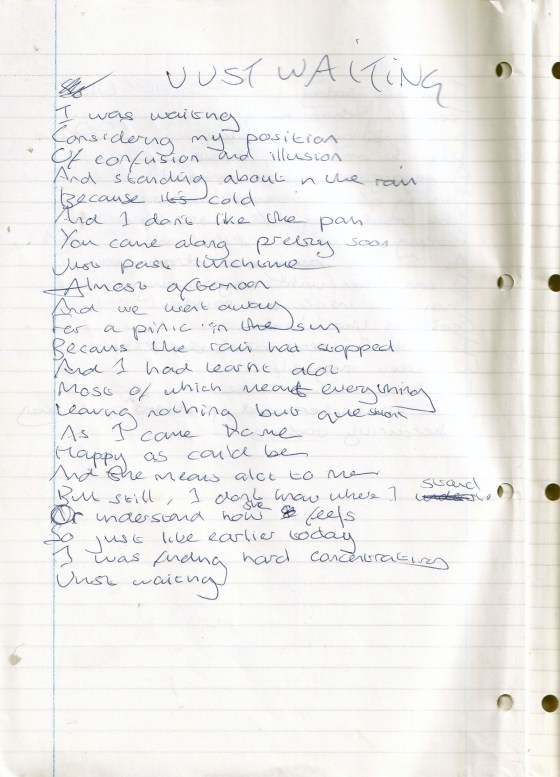 JUST WAITING
I was waiting
Considering my position
Of confusion and illusion
And standing about in the rain
Because its cold
And I don't like the pain
You came along pretty soon
Just past lunchtime
Almost afternoon
And we went away
For a picnic in the sun
Becaus the rain had stopped
And I had learnt alot
Most of which meant everything
Leaving nothing but question
As I came home
Happy as could be
And she means alot to me
But still, I don't know where I stand
Or understand how she feels
So just like earlier today
I was finding hard concentrating
Just waiting